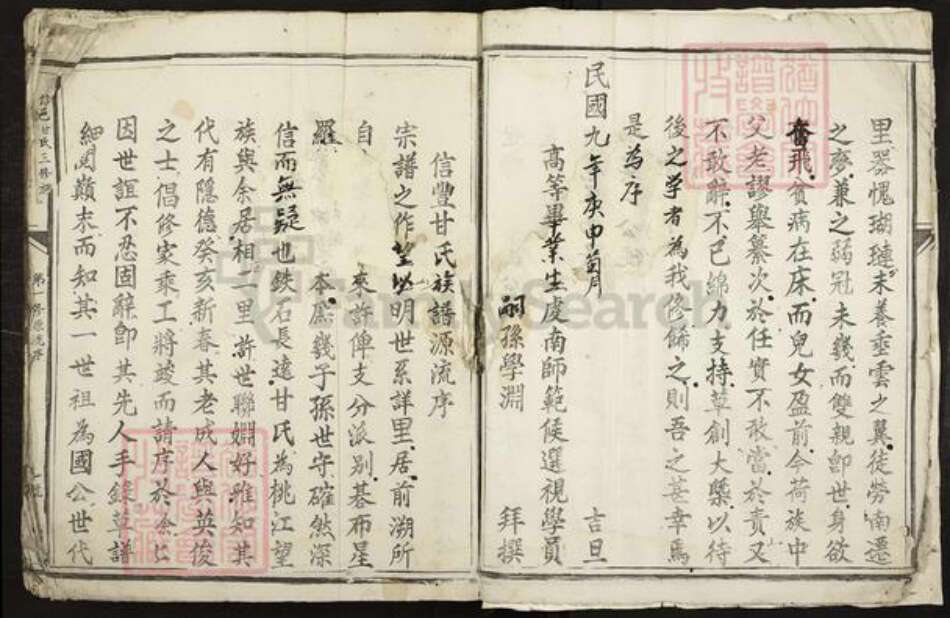 里器愧瑚璉未養垂雲之翼徒勞南遷
之夢兼之弱冠未幾而雙親即世身欲
奮飛貧病在床而兒女盈前今荷族中
父老謬舉纂次於任實不敢當於責又
不敢辭不已綿力支持草創大槩以待
後之学者為我修餙之則吾之甚幸焉
是為序
民國九年庚申 月 吉旦
高等畢業生虔南師範候選視學員
嗣孫學淵 拜撰
信豐甘氏族譜源流序
宗譜之作望以明世系詳里居前溯所
自 來許俾支分派別碁布星
羅 本 幾子孫世守確然深
信而無疑也鉄石長遠甘氏為桃江望
族與余居相二里許世聯婣好雅知其
代有隱德癸亥新春其老成人與英俊
之士倡修家乘工將竣而請序於余
因世誼不忍固辭即其先人手錄草譜
細閱巔末而知其一世祖為國公世代
甘氏三修
第一修源流序
FamilySearch